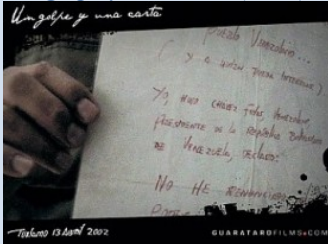 Un golpe y una carta
Pueblo Venezolano...
( y a quien pueda interesar )
Yo, Hugo Chávez Frías, Venezolano,
Presidente de la República Bolivariana
de Venezuela, declaro:
NO HE RENUNCIADO
Turiamo 13 Abril 2002
GUARATAROFILMS.COM